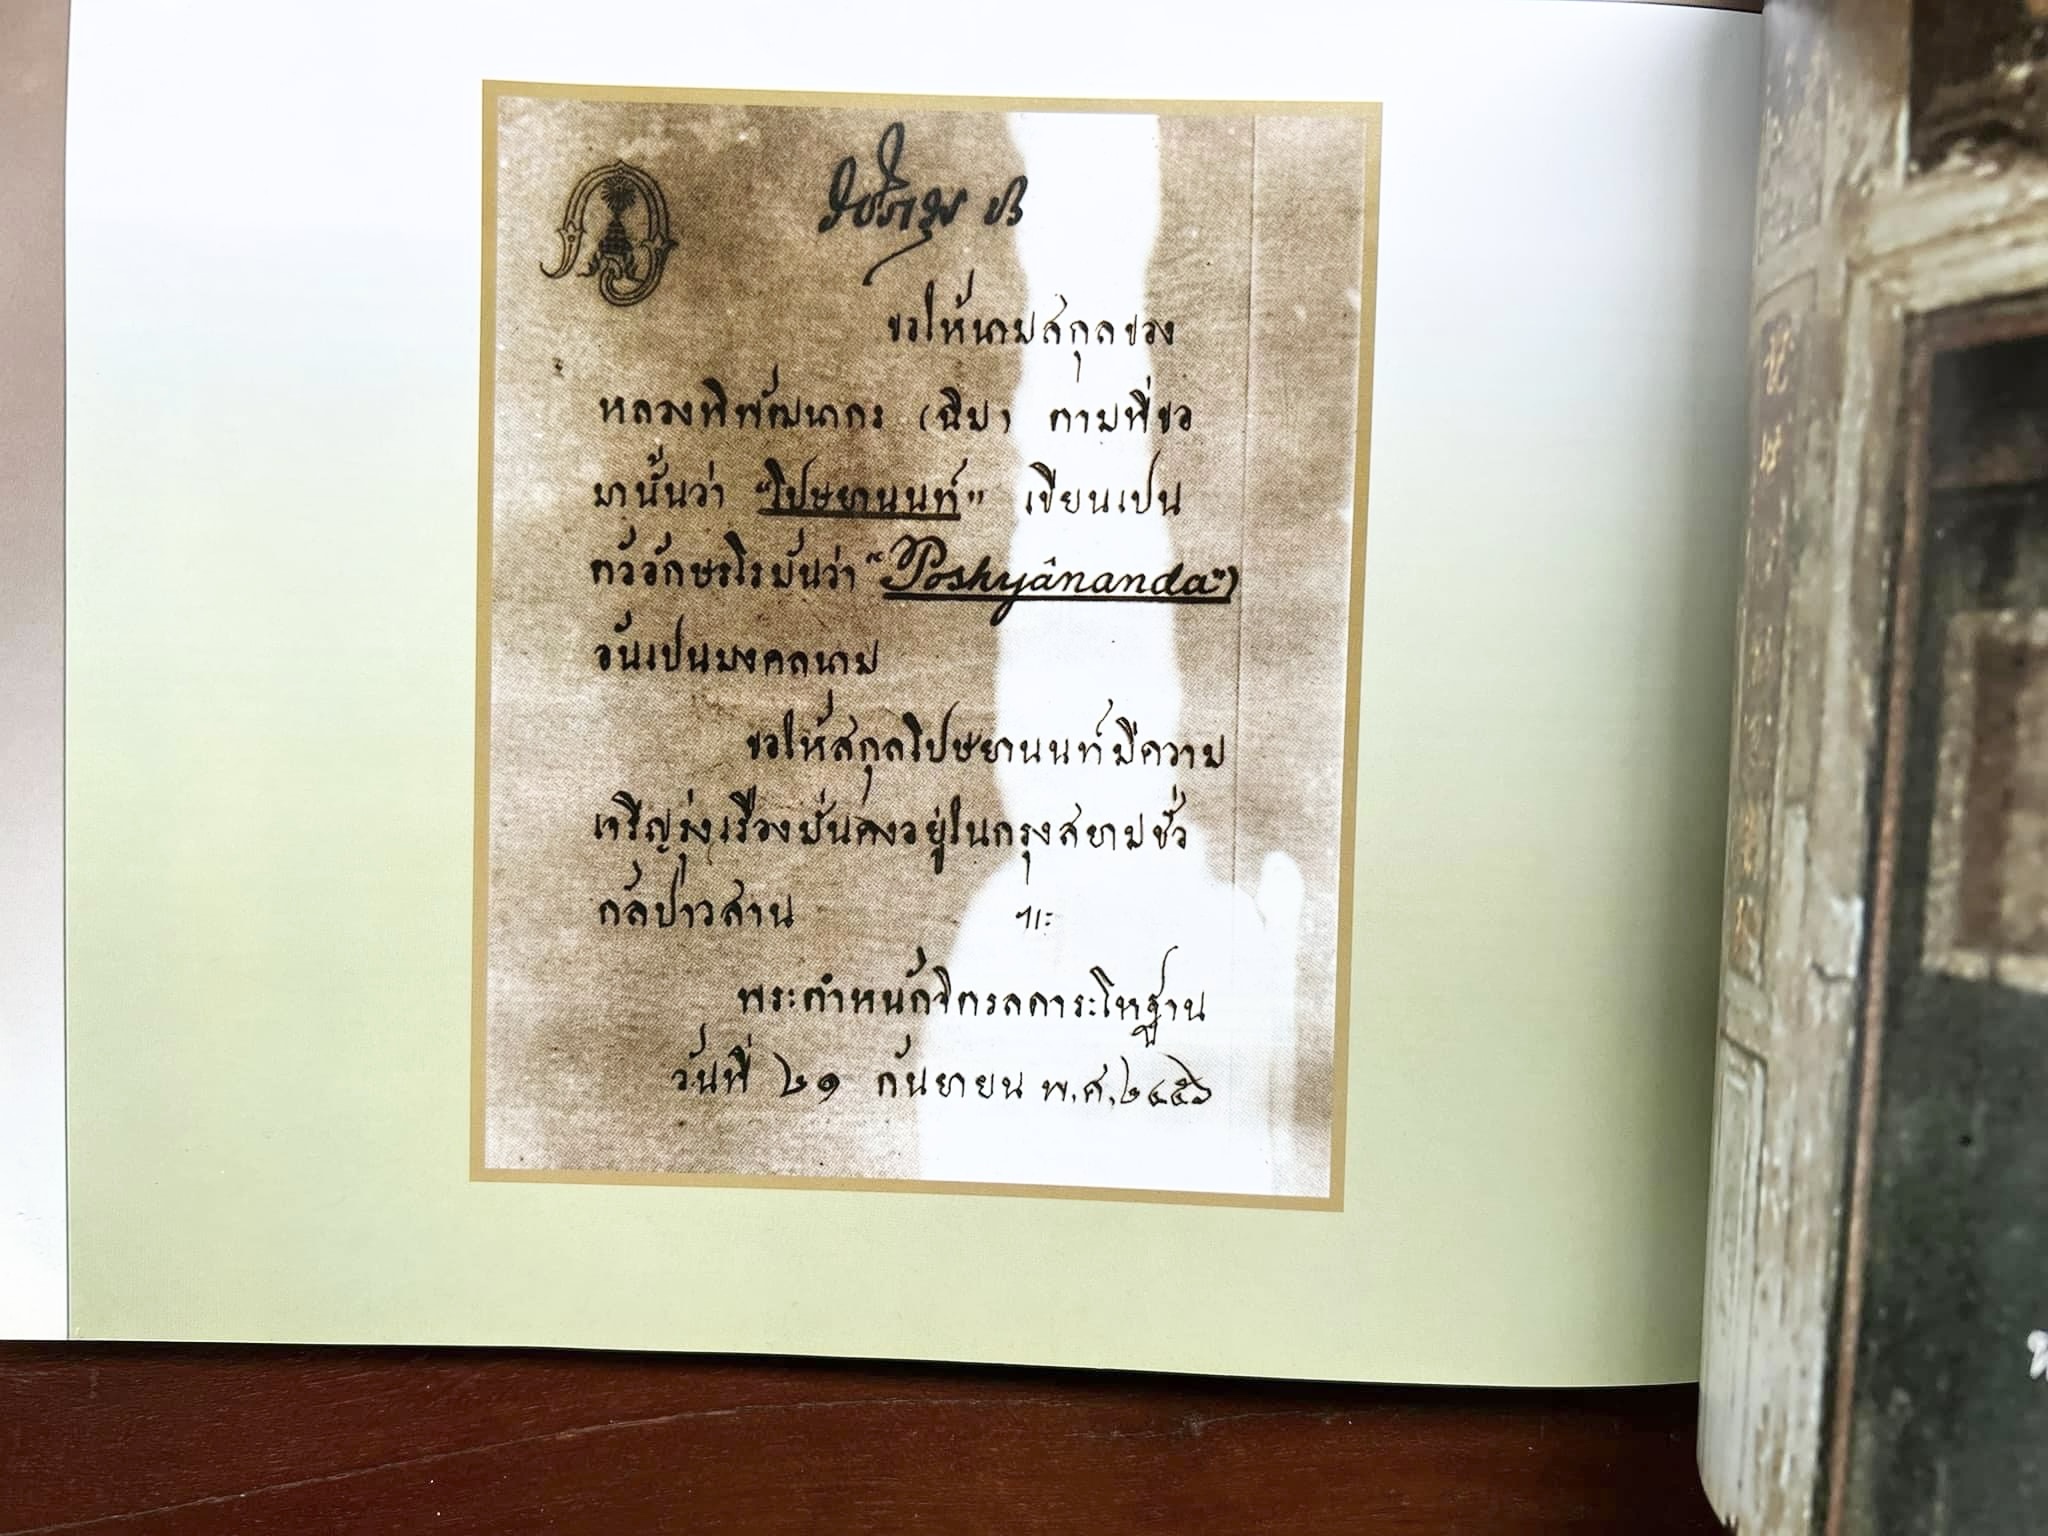 ขอให้นามสกุลของ
หลวงพิพัฒนากร (ฉิม) ตามที่ขอ
มานั้นว่า “โปษยานนท์” เขียนเปน
ตัวอักษรโรมันว่า “Poshyânanda”)
อันเปนมงคลนาม
ขอให้สกุลโปษยานนท์มีความ
เจริญรุ่งเรืองมั่นคงอยู่ในกรุงสยามชั่ว
กัลปาวสาน ฯะ
พระตำหนักจิตรลดาระโหฐาน
วันที่ ๒๑ กันยายน พ.ศ.๒๔๕๖